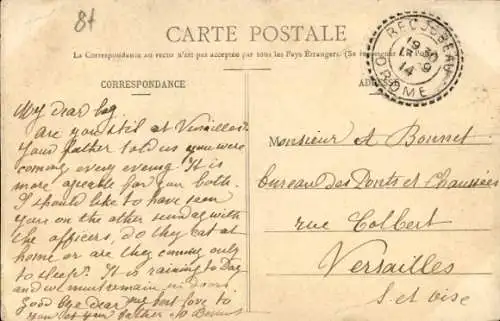 84
CARTE POSTALE
La Correspondance au recto n'est pas acceptée par tous les Pays Étrangers. (Se renseigner
CORRESPONDANCE
RECOUBEAU
19
14
DROME
My dear
are you still at Versailles?
Your father told us you were
coming every evening. It is
more agreable for you both.
I should like to have seen
you on the other sunday with
the officers, do they eat at
home or are they coming only
to sleep? It is raining to Day
and we must remain in doors.
Good bye dear my best love to
you let your father
Monsieur A Bonnet
bureau des Ponts et Chaussées
rue Colbert
Versailles
S. et Oise